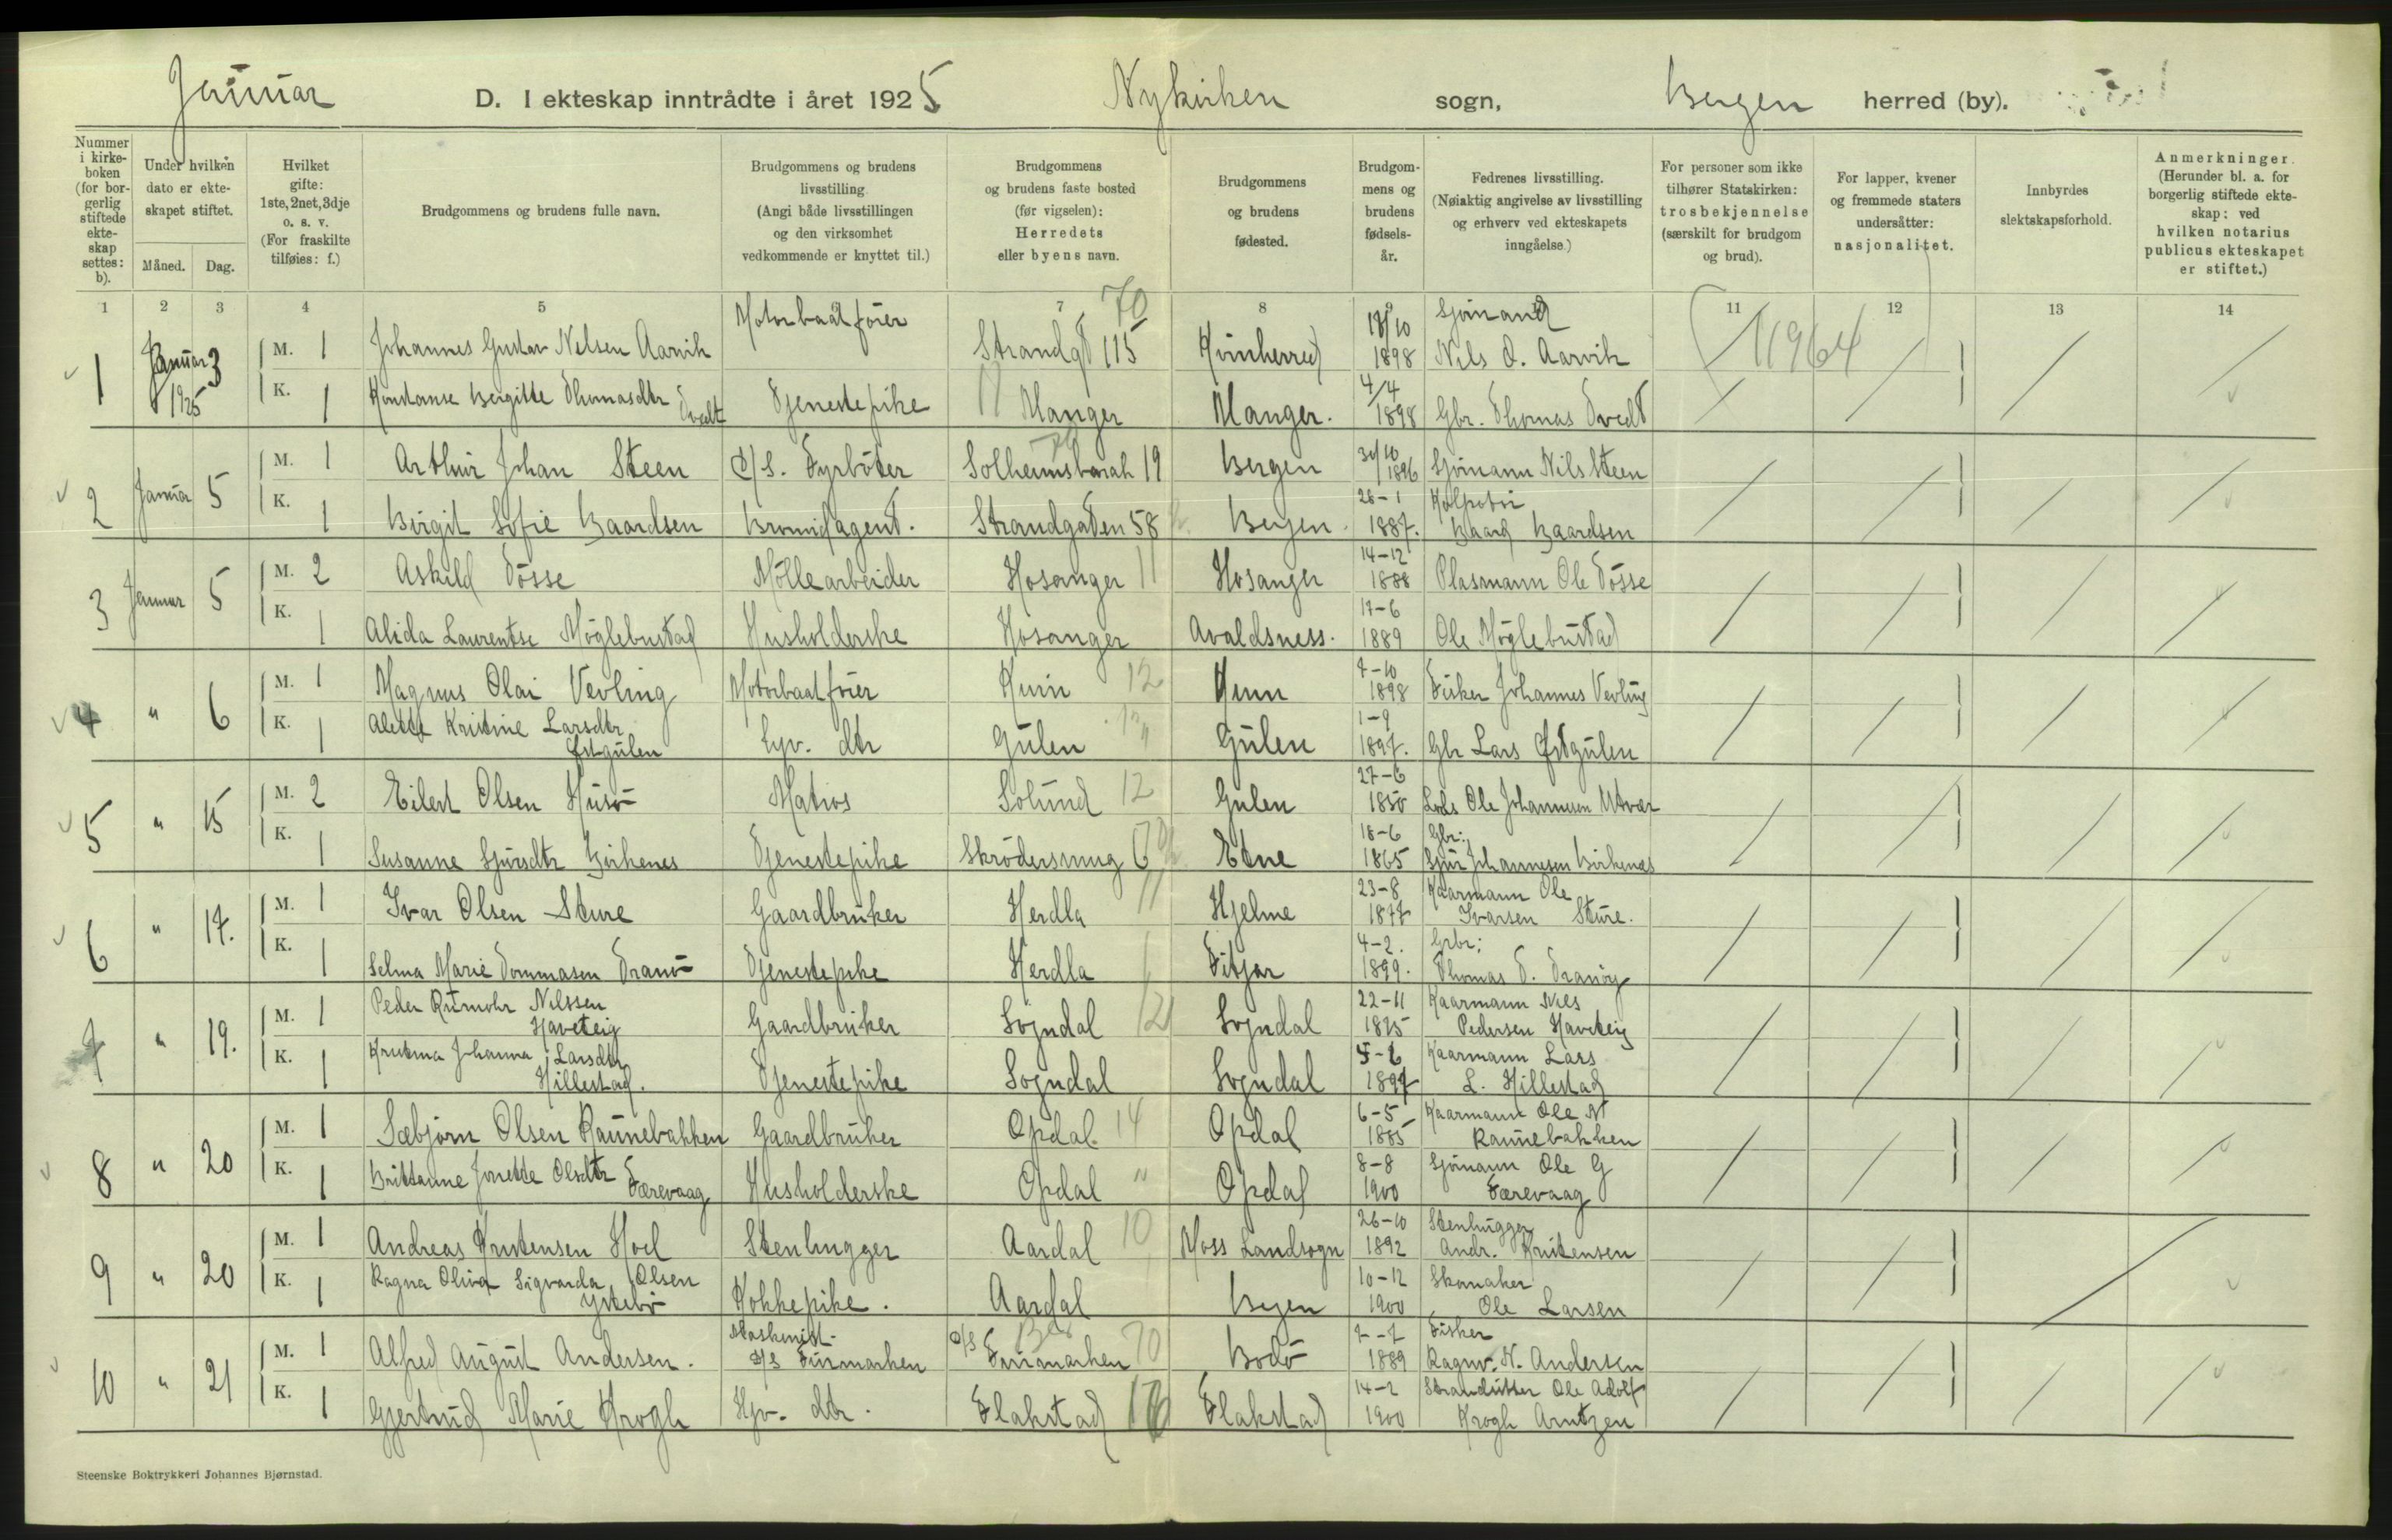 Januar D. I ekteskap inntrådte i året 1925 Nykirken sogn, Bergen herred (by).
Nummer i kirkeboken (for borgerlig stiftede ekteskap settes: b).
Under hvilken dato er ekteskapet stiftet.
Måned. Dag.
Hvilket gifte: 1ste, 2net, 3dje o. s. v. (For fraskilte tilføies: f.)
Brudgommens og brudens fulle navn.
Brudgommens og brudens livsstilling (Angi både livsstillingen og den virksomhet vedkommende er knyttet til.)
Brudgommens og brudens faste bosted (før vigselen): Herredets eller byens navn.
Brudgommens og brudens fødested.
Brudgommens og brudens fødselsår.
Fedrenes livsstilling. (Nøiaktig angivelse av livsstilling og erhverv ved ekteskapets inngåelse.)
For personer som ikke tilhører Statskirken: trosbekjennelse (særskilt for brudgom og brud).
For lapper, kvener og fremmede staters undersåtter: nasjonalitet.
Innbyrdes slektskapsforhold.
Anmerkninger. (Herunder bl. a. for borgerlig stiftede ekteskap: ved hvilken notarius publicus ekteskapet er stiftet.)
1 2 3 4 5 7 8 9 11 12 13 14
1 Januar 1925 3 M. 1 Johannes Gustav Nilsen Aarvik Motorbaatfører Strandgt 115 70 Kvinherred 18/10 1898 Sjømand Nils O. Aarvik 11964
K. 1 Konstanse Bergitte Thomasdtr Tvedt Tjenestepike Manger 11 Manger. 4/4 1898 Gbr. Thomas Tvedt
2 Januar 5 M. 1 Arthur Johan Steen D/S. Fyrbøter Solheimsbarak 19 Bergen 30/10 1896 Sjømann Nils Steen
K. 1 Birgit Sofie Baardsen Strandgaten 58 Bergen. 26-1 1887. Baard Baardsen
3 Januar 5 M. 2 Askild Tøsse Møllearbeider Hosanger 11 Hosanger 14-12 1888 Plasmann Ole Tøsse
K. 1 Alida Laurentse Møglebustad Husholderske Hosanger Avaldsness. 17-6 1889 Ole Møglebustad
4 " 6 M. 1 Magnus Olai Vevling Motorbaatfører Kinn 12 Kinn 7-10 1898 Fisker Johannes Vevling
K. 1 Alette Kristine Larsdtr Østgulen Hjv. dtr Gulen " Gulen 1-9 1897. Gbr Lars Østgulen
5 " 15 M. 2 Eilert Olsen Husø Matros Solund 12 Gulen 27-6 1850 Lods Ole Johannesen Utvær
K. 1 Susanne Sjursdtr Birkenes Tjenestepike Skrödersmug 6 Etne 18-6 1865 Gbr: Sjur Johannesen Birkenes
6 " 17. M. 1 Ivar Olsen Sture Gaardbruker Herdla 11 Hjelme 23-8 1877 Kaarmann Ole Ivarsen Sture.
K. 1 Selma Marie Tommasen Tranø Tjenestepike Herdla Fitjar 4-2. 1899. Grbr; Thomas T. Tranøy
7 " 19. M. 1 Peder Rumohr Nilssen Haveteig Gaardbruker Sogndal 12 Sogndal 22-11 1895 Kaarmann Nils Pedersen Haveteig
K. 1 Kristina Johanna Larsdtr Hillestad. Tjenestepike Sogndal Sogndal 5-6 1897 Kaarmann Lars L. Hillestad
8 " 20 M. 1 Sæbjørn Olsen Raunebakken Gaardbruker Opdal. 14 Opdal 6-5 1885 Kaarmann Ole N Raunebakken
K. 1 Brittanne Jonette Olsdtr Færevaag Husholderske Opdal " Opdal 8-8 1900 Sjømann Ole G Færevaag
9 " 20 M. 1 Andreas Kristensen Hoel Stenhugger Aardal 10 Moss Landsogn 26-10 1892 Stenhugger Andr. Kristensen
K. 1 Ragna Oliva Sigvarda Olsen Ystebø Kokkepike. Aardal Bergen 10-12 1900 Skomaker Ole Larsen
10 " 21 M. 1 Alfred August Andersen. Maskinist D/S Finmarken D/S Finmarken 70 Bodø 7-7 1889 Fisker Ragnv. N. Andersen
K. 1 Gjertrud Marie Krogh Hjv. dtr. Flakstad Flakstad 14-2 1900 Strandsitter Ole Adolf Krogh Arntzen
Steenske Boktrykkeri Johannes Bjørnstad.